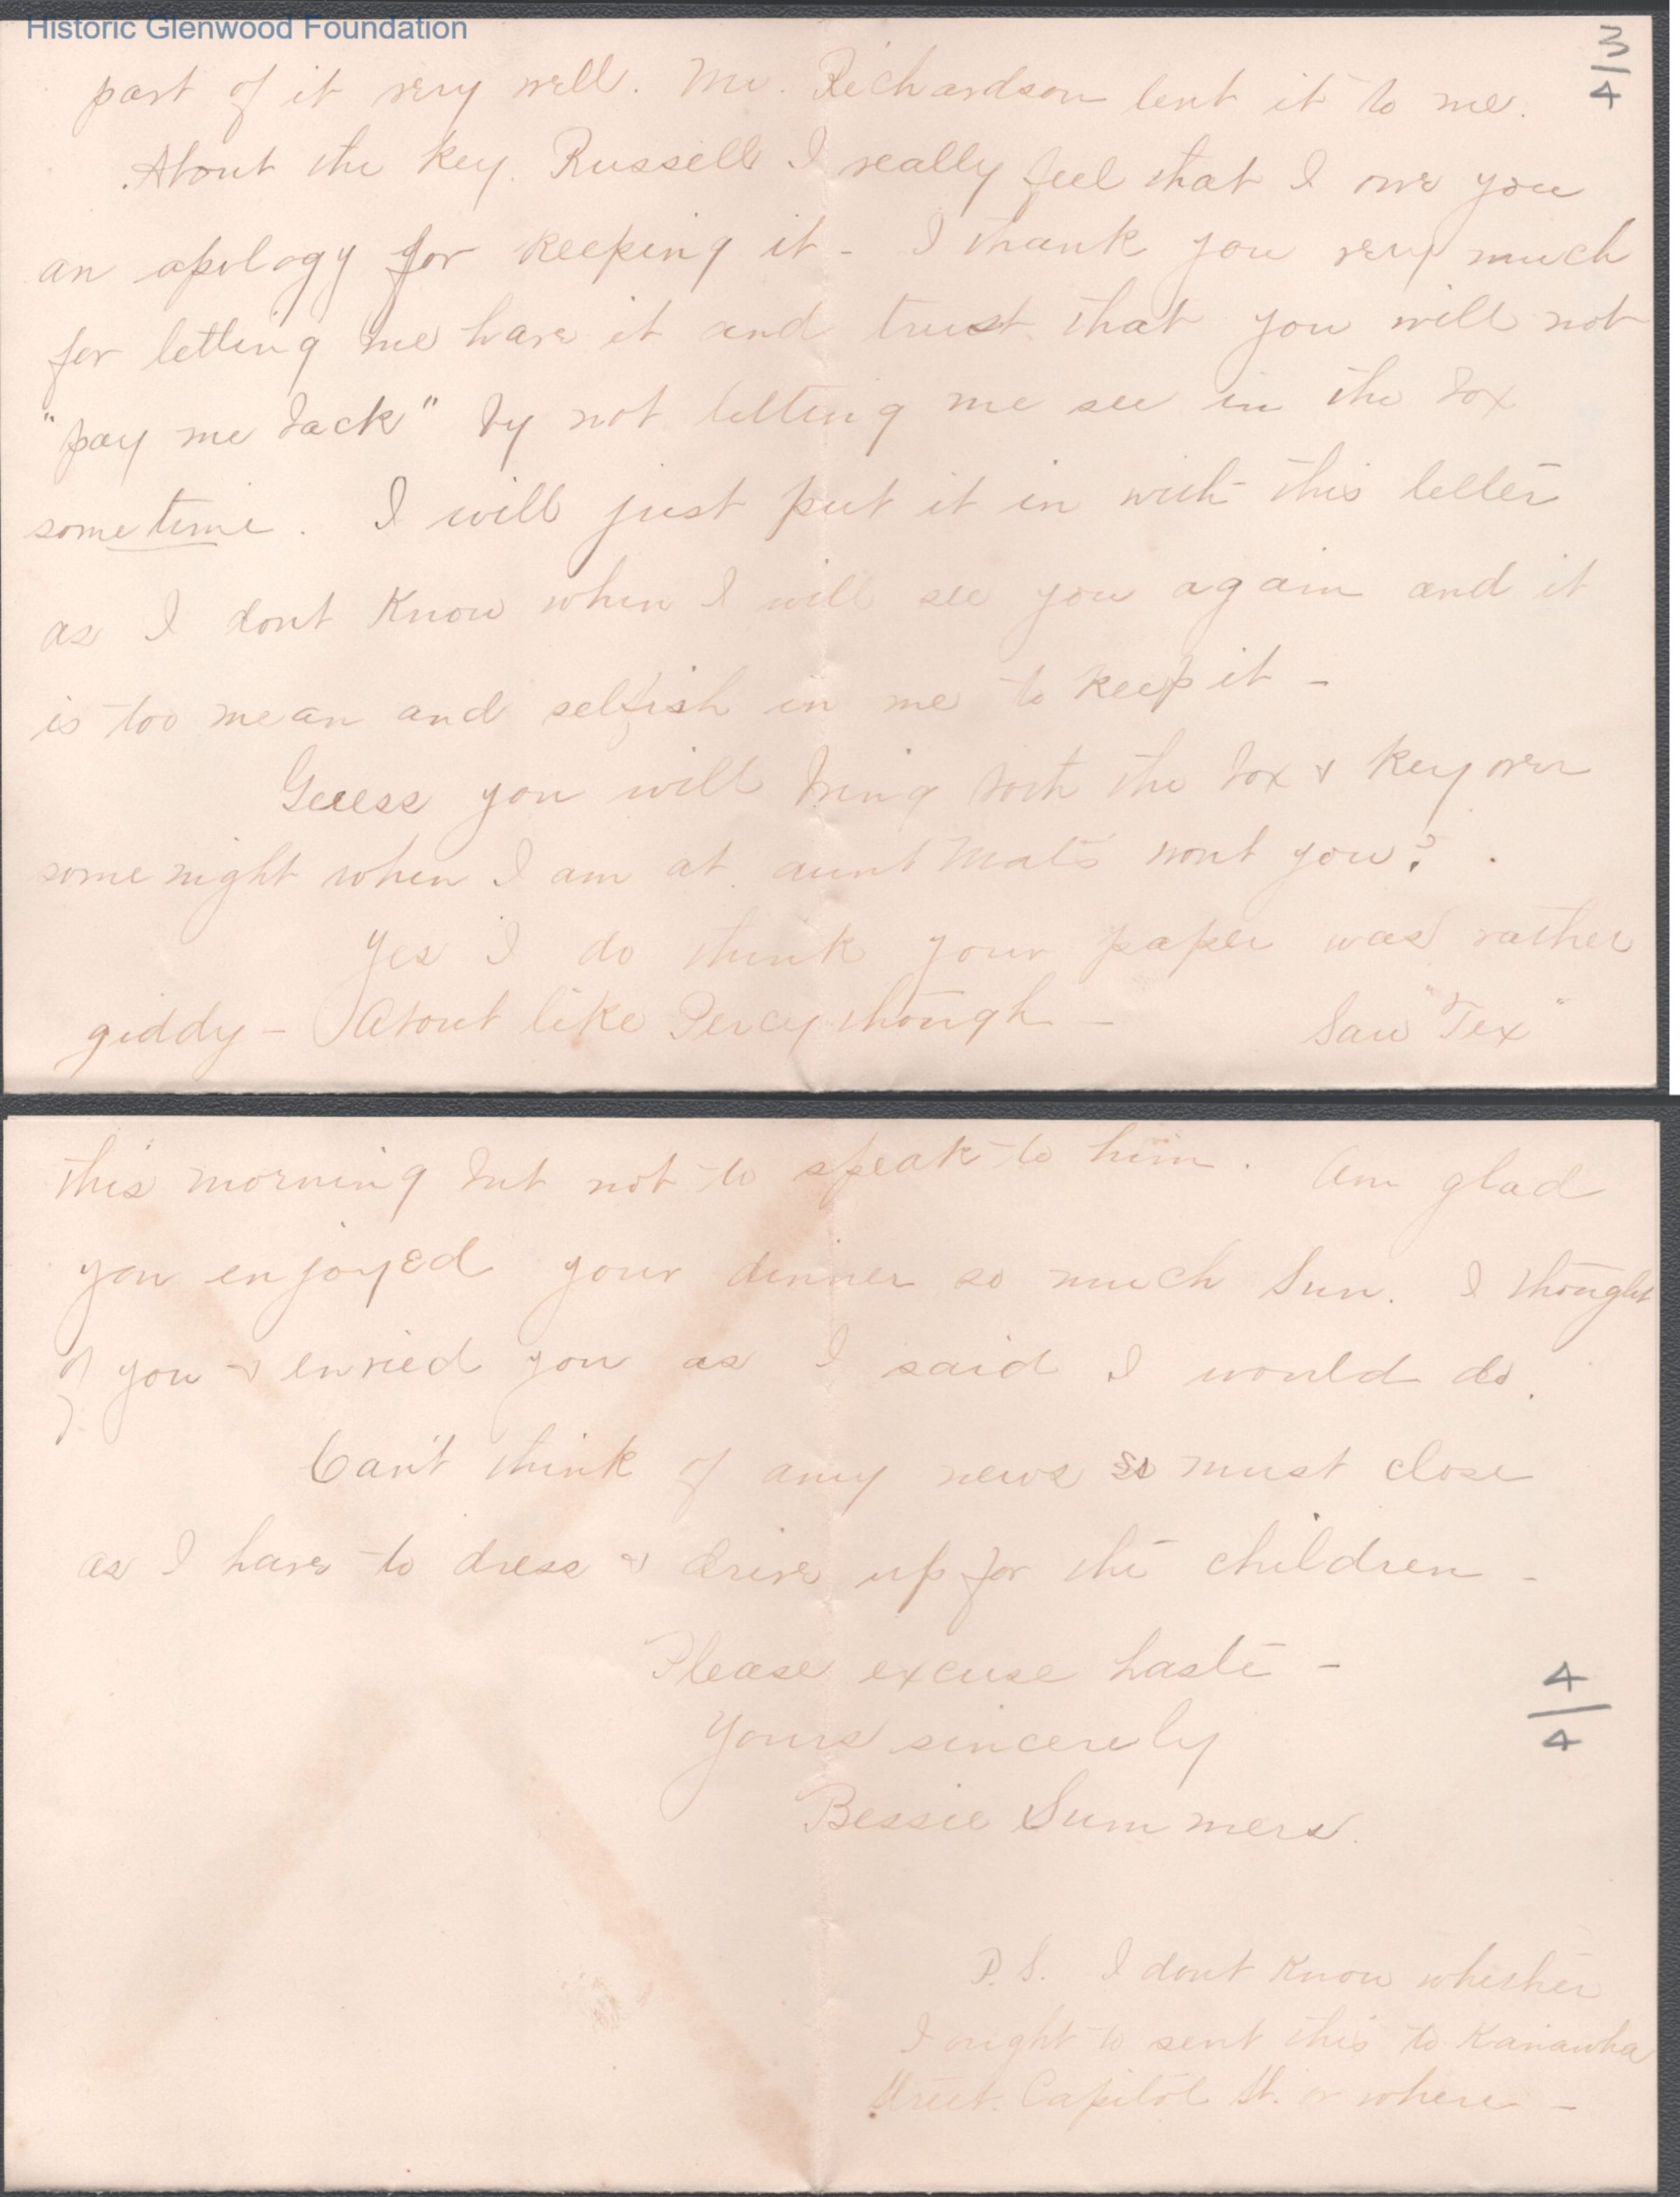 Historic Glenwood Foundation
3/4
part of it very well. Mr. Richardson lent it to me.
About the key. Russell I really feel that I owe you
an apology for keeping it - I thank you very much
for letting me have it and trust that you will not
"pay me back" by not letting me see in the box
sometime. I will just put it in with this letter
as I dont know when I will see you again and it
is too mean and selfish in me to keep it -
Guess you will bring both the box & key over
some night when I am at aunt Mat's wont you?
Yes I do think your paper was rather
giddy - About like Percy though - Saw "Tex"
this morning but not to speak to him. Am glad
you enjoyed your dinner so much Sun. I thought
of you & envied you as I said I would do.
Can't think of any news so must close
as I have to dress & drive up for the children -
Please excuse haste -
4/4
Yours sincerely
Bessie Summers.
P.S. I dont know whether
I ought to sent this to Kanawha
Street. Capitol St. or where -